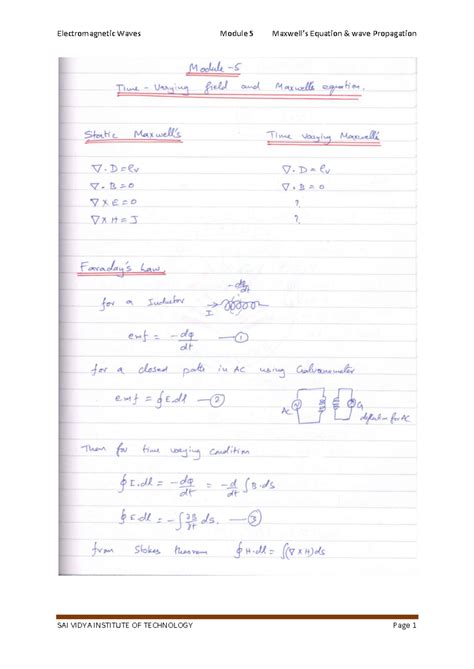 Electromagnetic Waves Module 5 Maxwell's Equation & wave Propagation
Module -5
Time - Varying field and Maxwells equation.
Static Maxwell's Time varying Maxwells
∇ . D = ρv ∇ . D = ρv
∇ . B = 0 ∇ . B = 0
∇ X E = 0 ?
∇ X H = J ?
Faraday's Law.
-dφ/dt
for a Inductor I
emf = -dφ/dt — ①
for a closed path in AC using Galvanometer
emf = ∮E.dl — ②
AC G
deflection for AC
Then for time varying condition
∮E.dl = -dφ/dt = -d/dt ∫B.ds
∮E.dl = -∫∂B/∂t ds. — ③
from Stokes theorem ∮H.dl = ∫(∇ X H)ds
SAI VIDYA INSTITUTE OF TECHNOLOGY Page 1